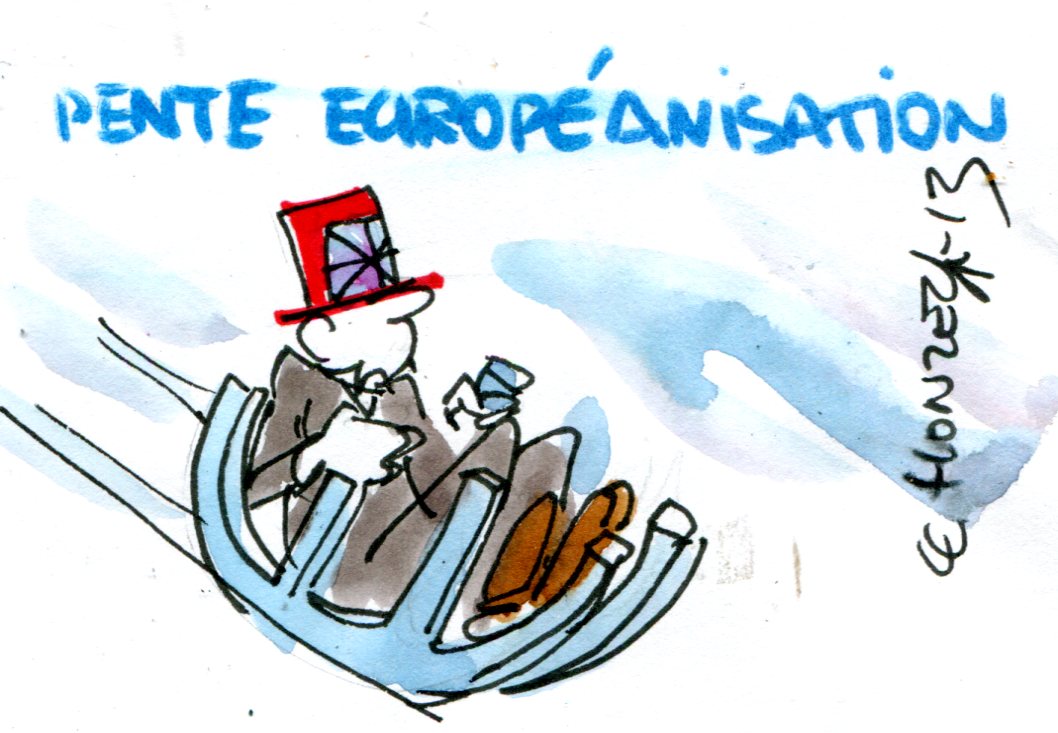 PENTE EUROPÉANISATION
LE HONZEK-13